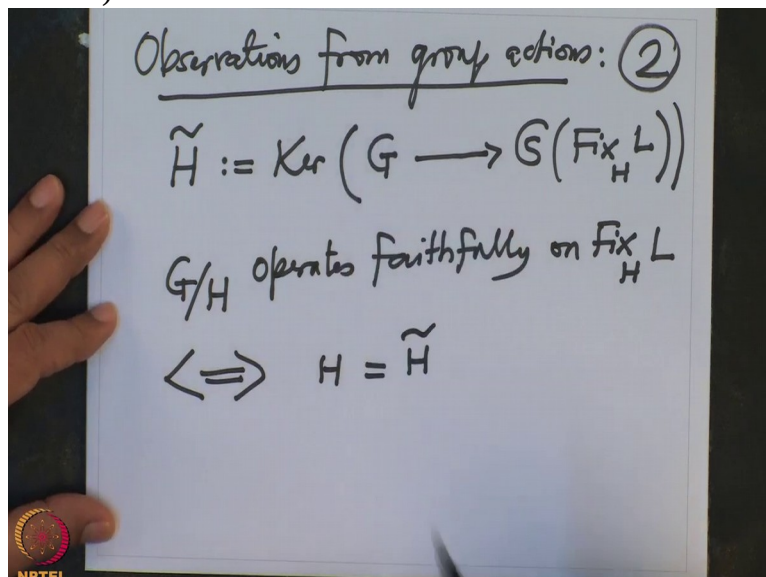 Observations from group actions: 2
H̃ := Ker (G ⟶ 𝔖(Fix_H L))
G/H operates faithfully on Fix_H L
⟺ H = H̃
NPTEL